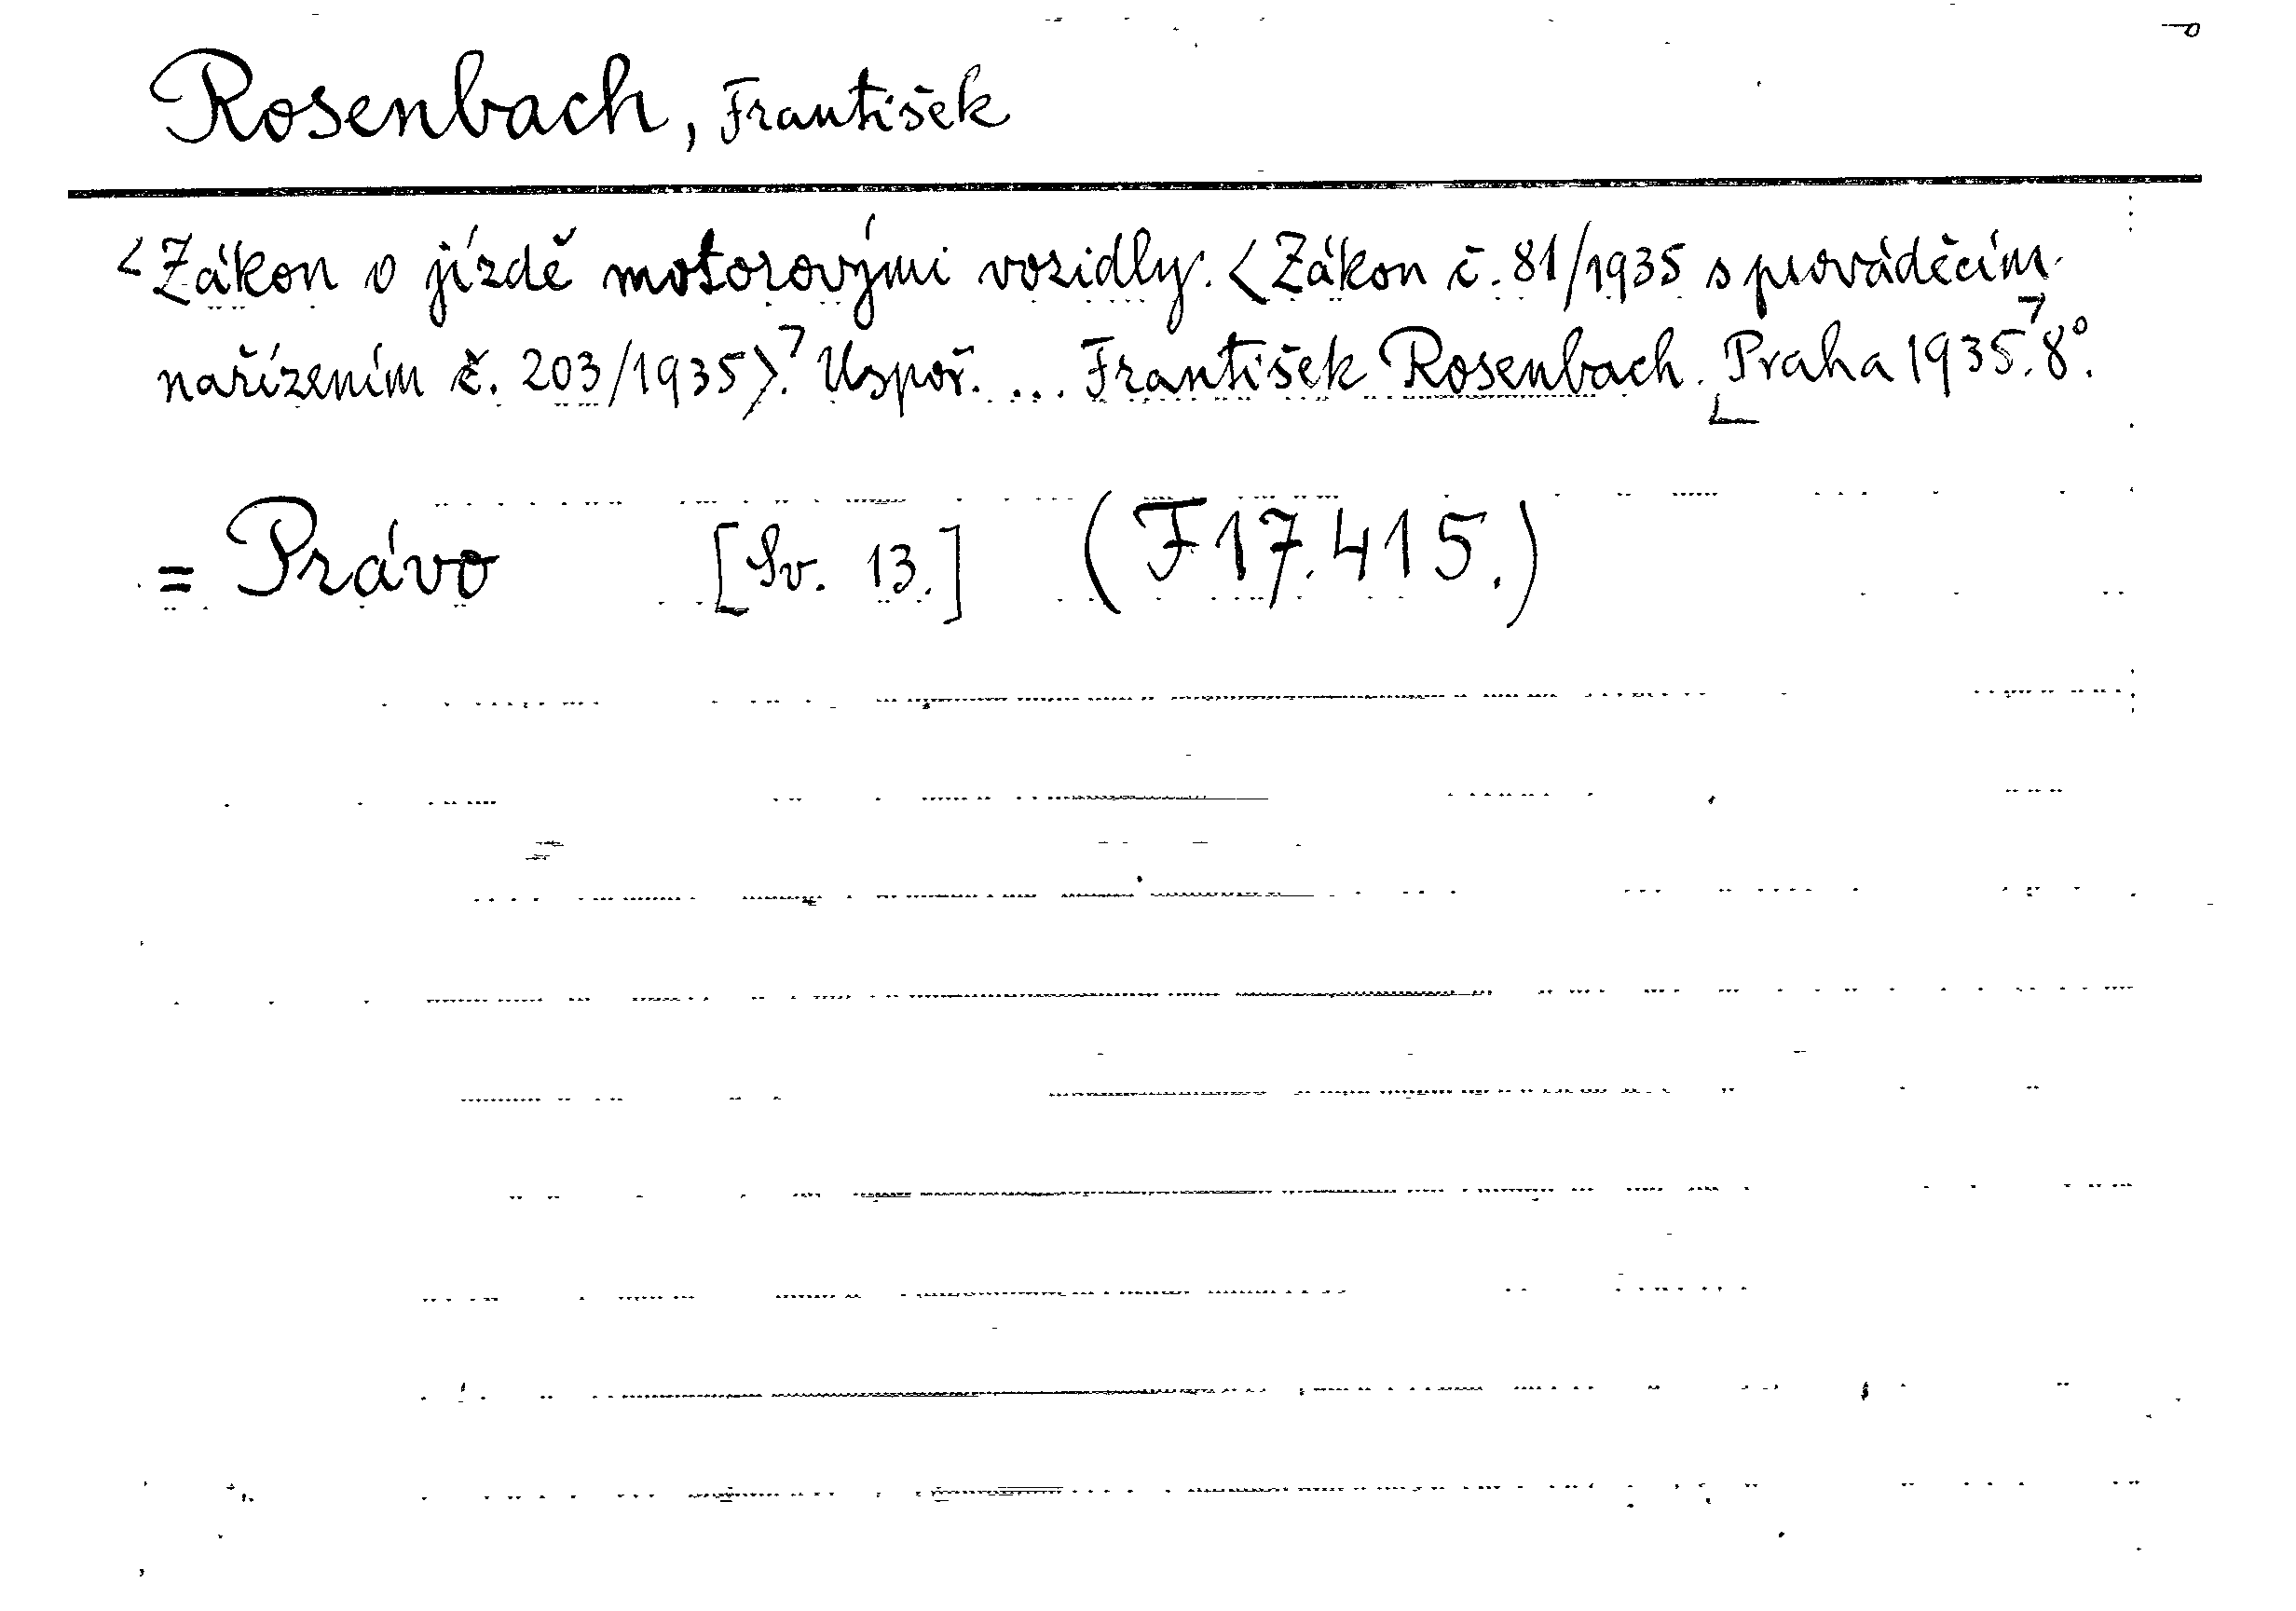 Rosenbach, František
<Zákon o jízdě motorovými vozidly. <Zákon č. 81/1935 s prováděcím
nařízením č. 203/1935>.⁊ Uspoř. ... František Rosenbach. Praha 1935.⁊ 8°.
= Právo [Sv. 13.] (F 17.415.)